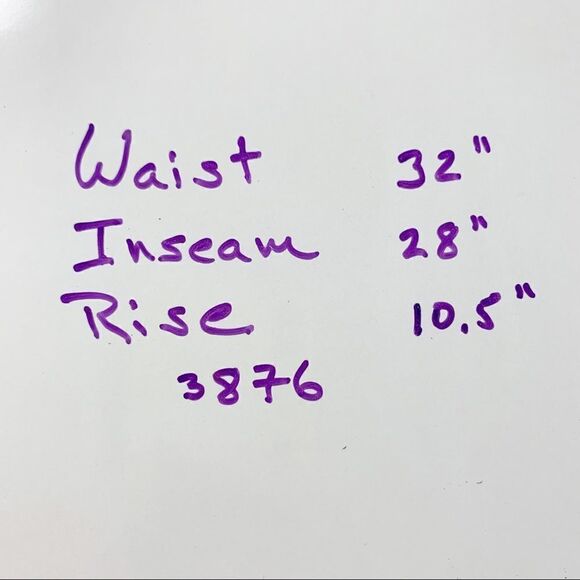 Waist 32"
Inseam 28"
Rise 10.5"
3876